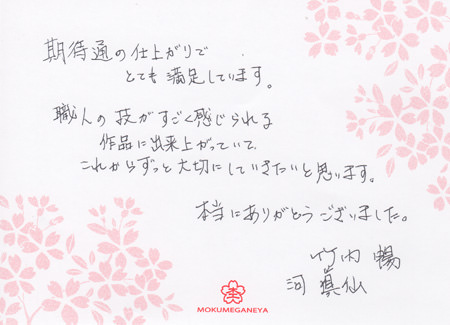 期待通の仕上がりで
とても満足しています。
職人の技がすごく感じられる
作品に出来上がっていて、
これからずっと大切にしていきたいと思います。
本当にありがとうございました。
竹内 暢
河 眞仙
MOKUMEGANEYA